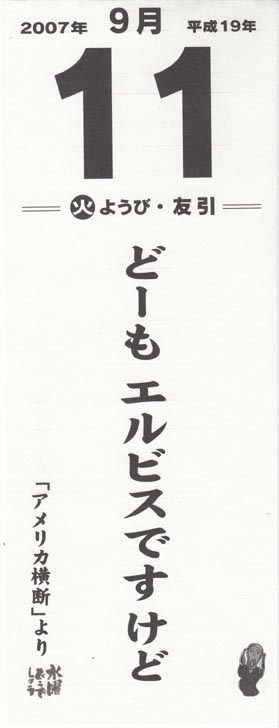 2007年 9月 平成19年
11
火ようび・友引
どーも エルビスですけど
「アメリカ横断」より
水曜
どうで
しょう